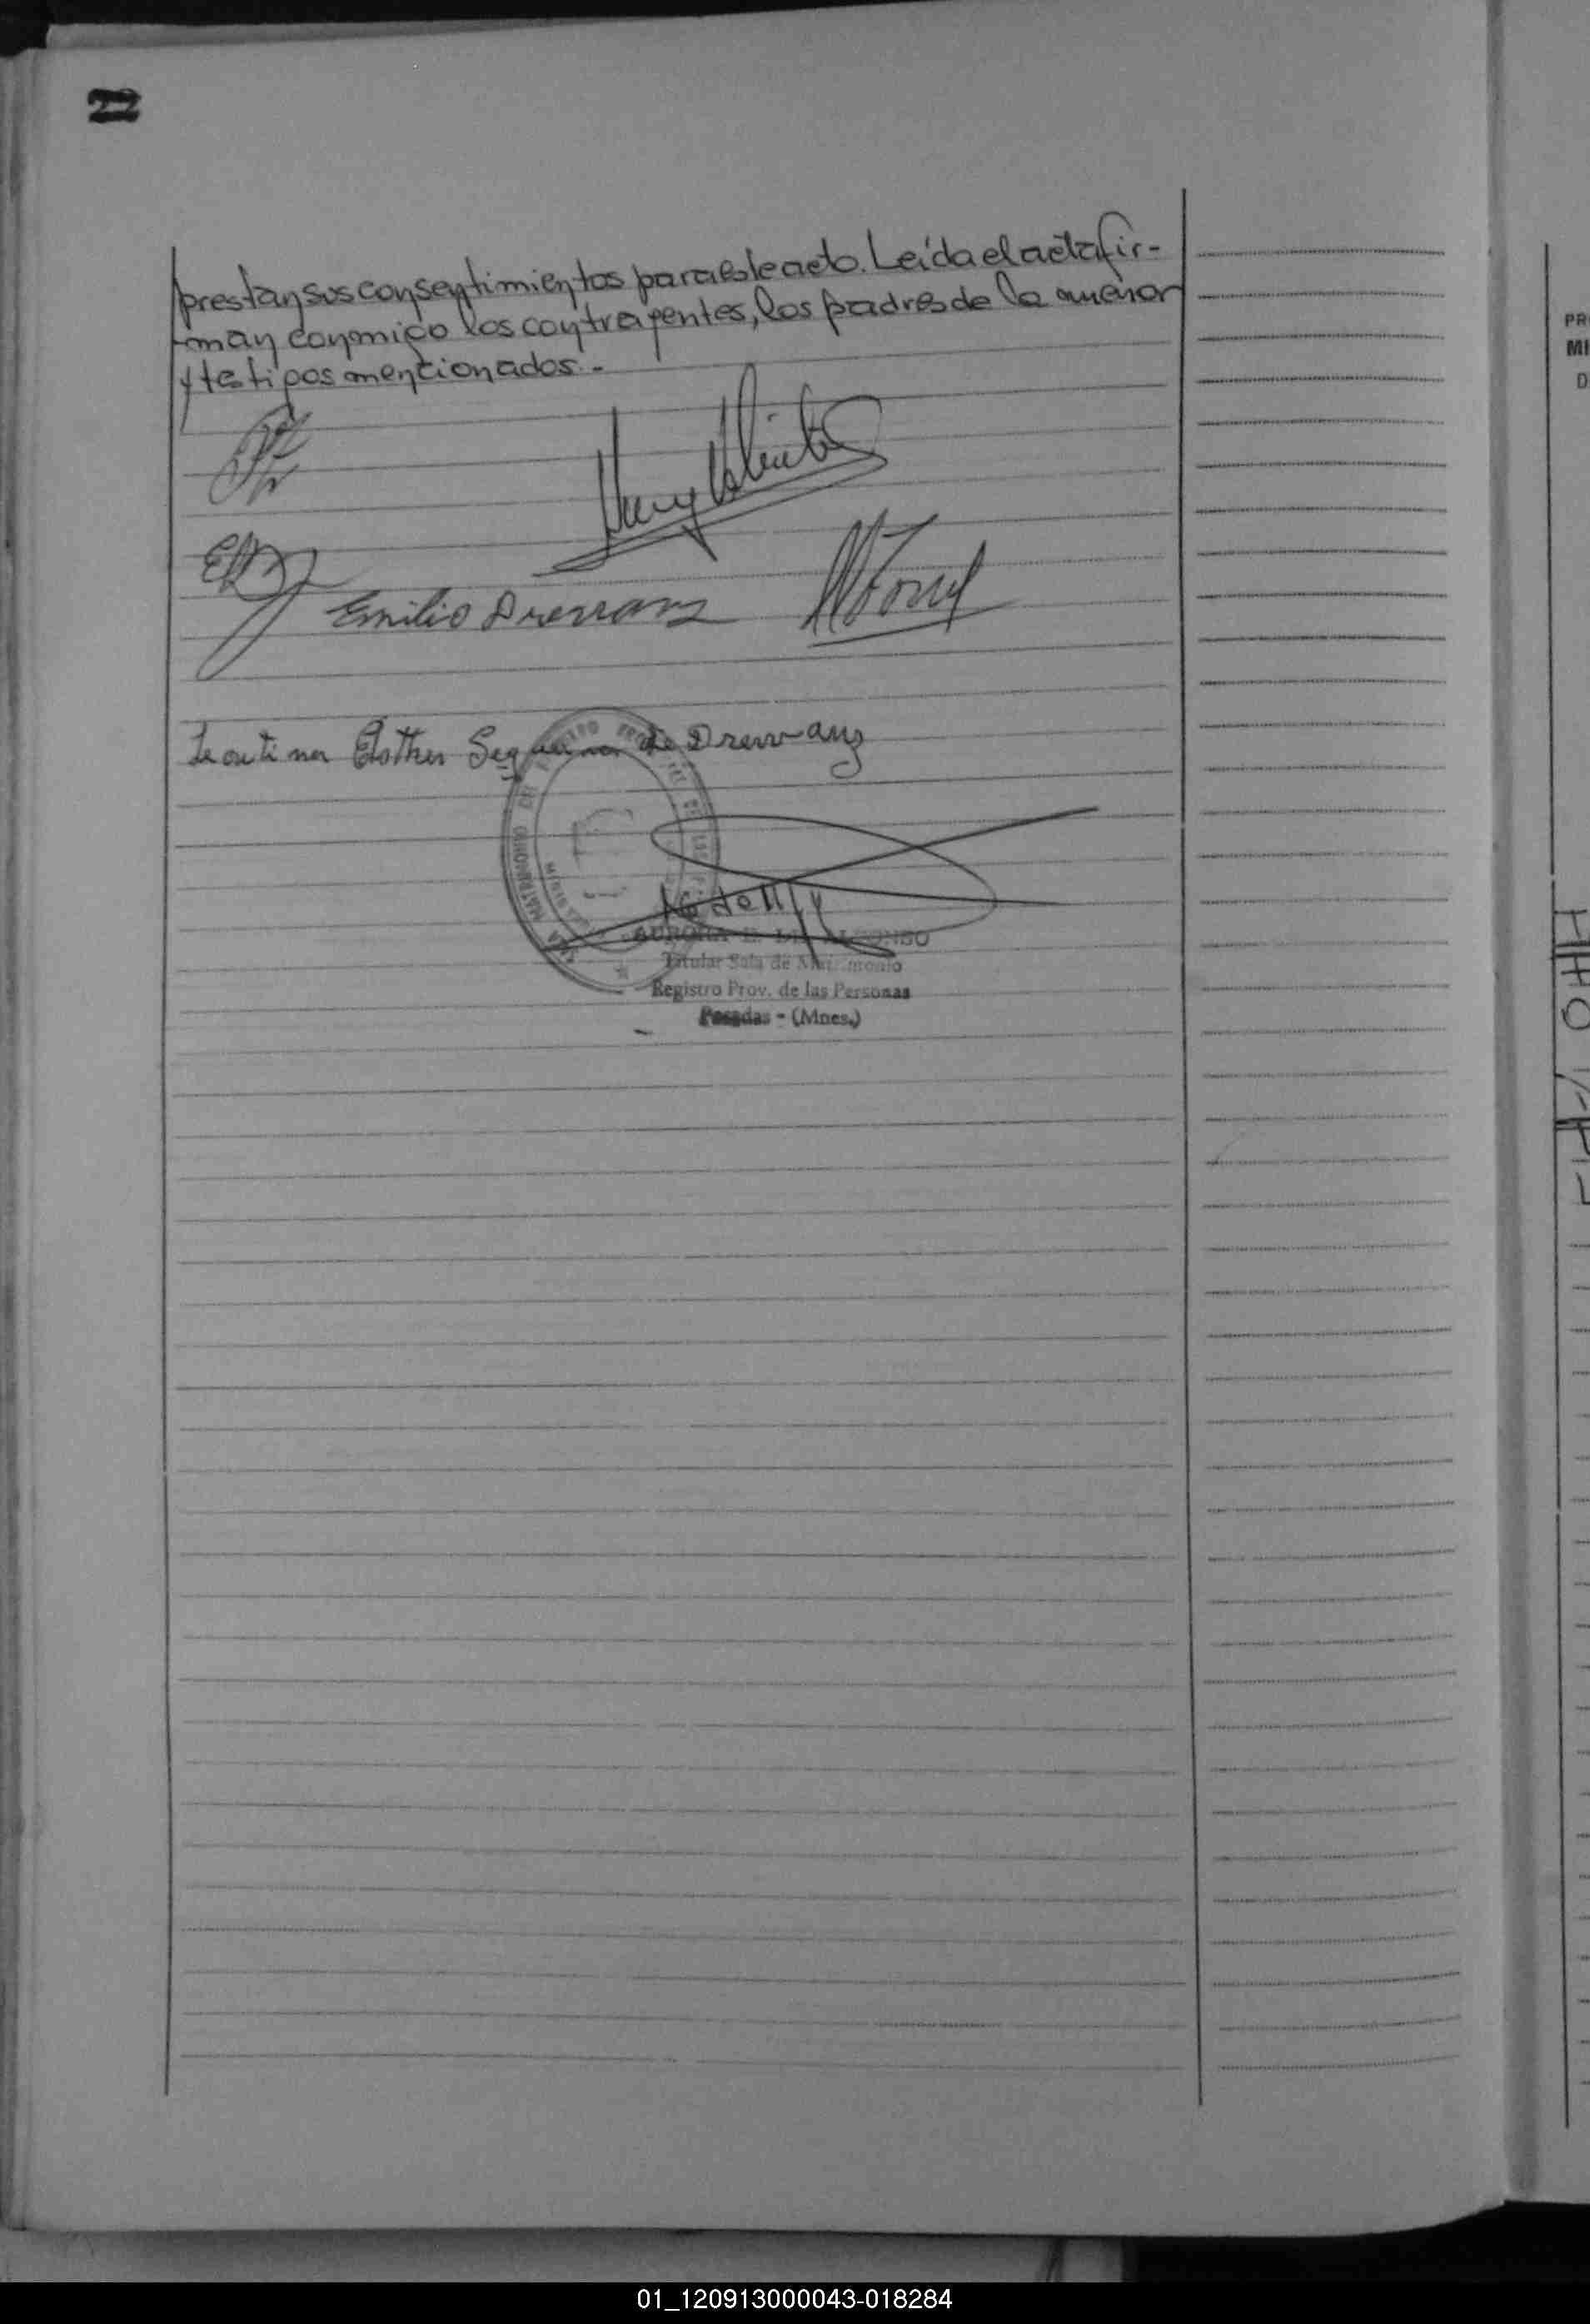 22
prestan sus consentimientos para este acto. Leída el acta fir-
man conmigo los contragentes, los padres de la menor
y testigos mencionados.-
Emilio Drewanz
Leontina Esther de Drewanz
AURORA E. DE ALFONSO
Titular Sala de Matrimonio
Registro Prov. de las Personas
Posadas - (Mnes.)
PR
MI
D
01_120913000043-018284